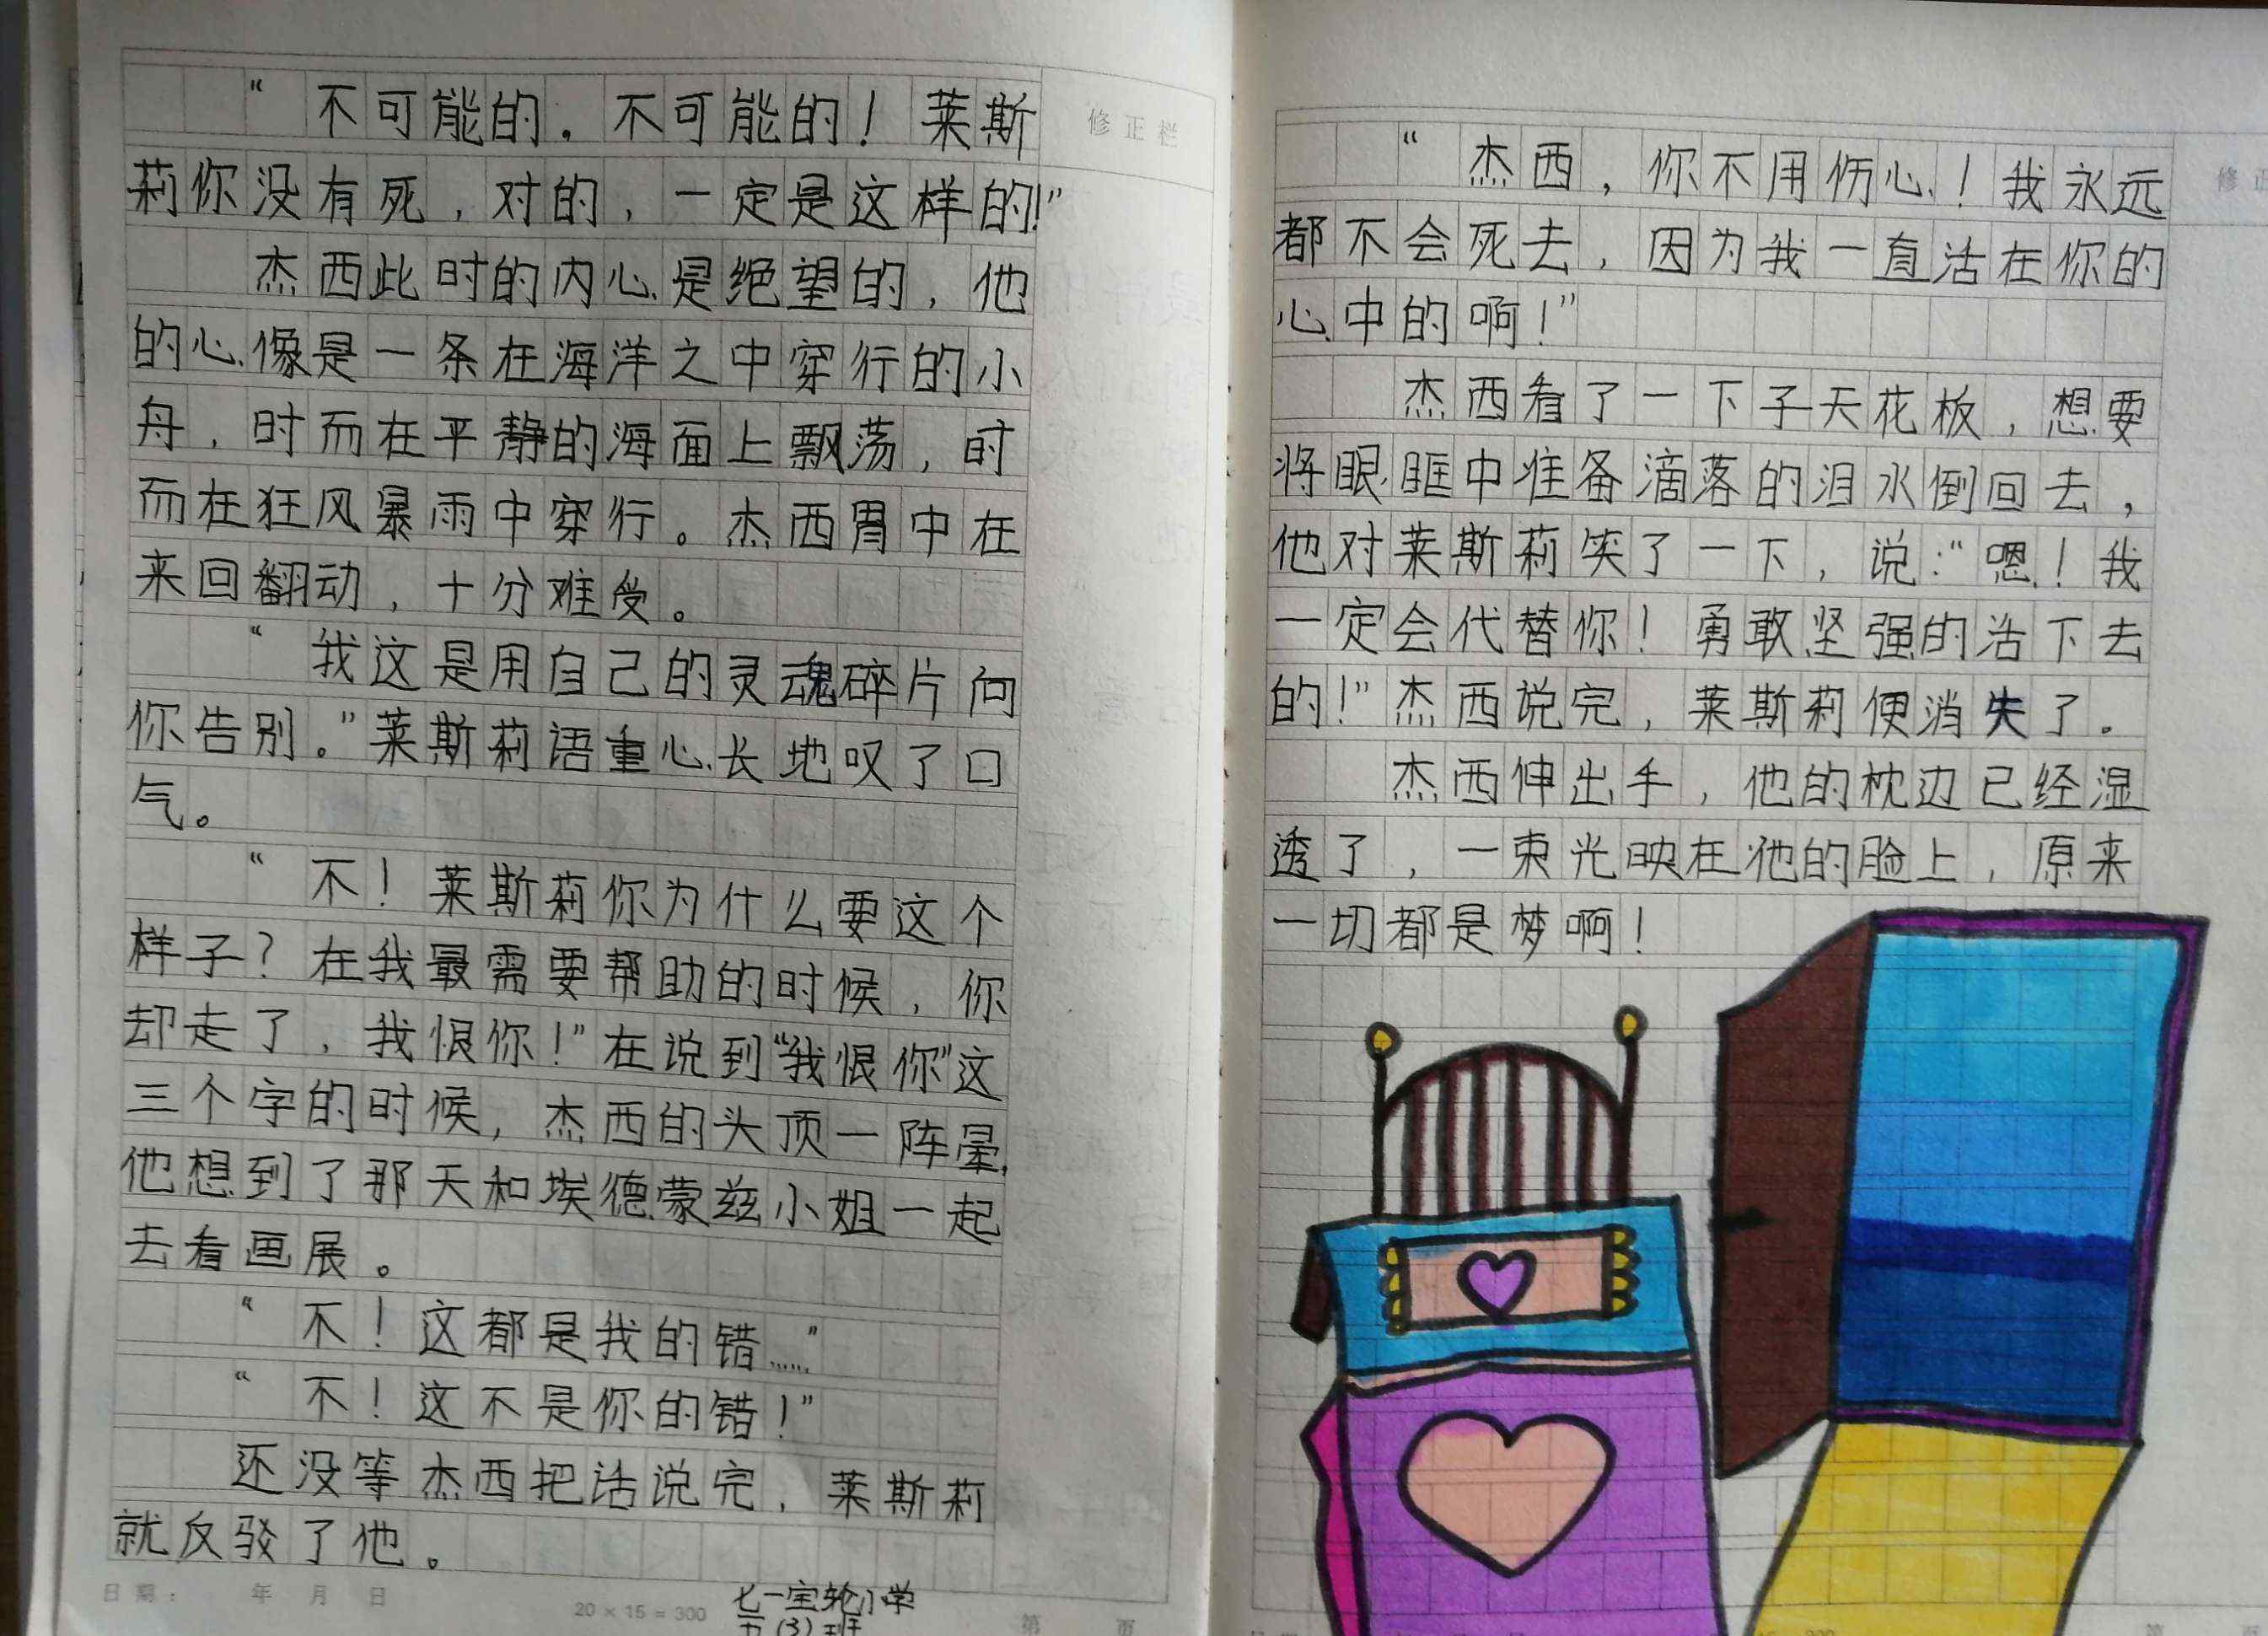 “不可能的。不可能的！莱斯
莉你没有死，对的，一定是这样的！”
杰西此时的内心是绝望的，他
的心像是一条在海洋之中穿行的小
舟，时而在平静的海面上飘荡，时
而在狂风暴雨中穿行。杰西胃中在
来回翻动，十分难受。
“我这是用自己的灵魂碎片向
你告别。”莱斯莉语重心长地叹了口
气。
“不！莱斯莉你为什么要这个
样子？在我最需要帮助的时候，你
却走了，我恨你！”在说到“我恨你”这
三个字的时候，杰西的头顶一阵晕，
他想到了那天和埃德蒙兹小姐一起
去看画展。
“不！这都是我的错……”
“不！这不是你的错！”
还没等杰西把话说完，莱斯莉
就反驳了他。
修正栏
日期： 年 月 日
20×15=300
七一宝轮小学
五(3)班
第 页
“杰西，你不用伤心！我永远
都不会死去，因为我一直活在你的
心中的啊！”
杰西看了一下子天花板，想要
将眼眶中准备滴落的泪水倒回去，
他对莱斯莉笑了一下，说：“嗯！我
一定会代替你！勇敢坚强的活下去
的！”杰西说完，莱斯莉便消失了。
杰西伸出手，他的枕边已经湿
透了，一束光映在他的脸上，原来
一切都是梦啊！
修正